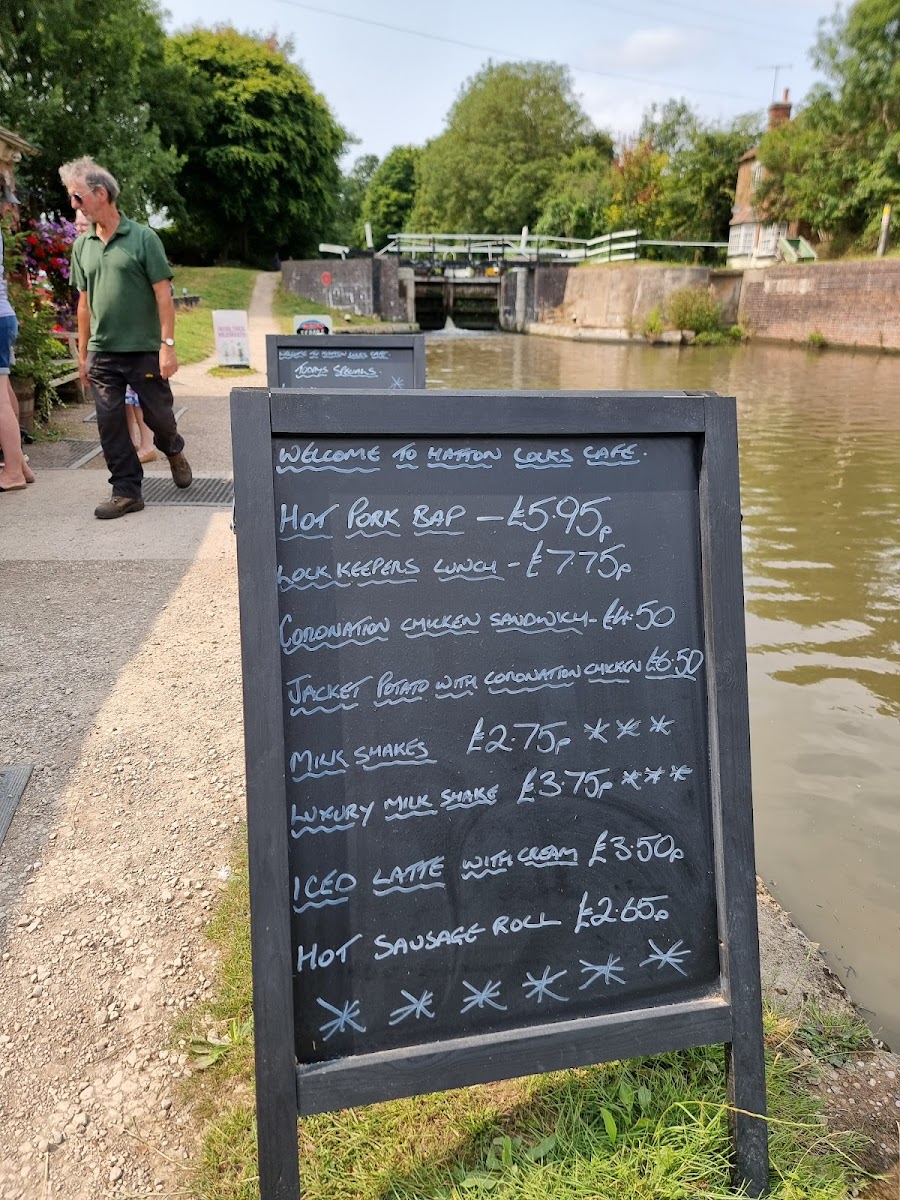 WELCOME TO HATTON LOCKS CAFE
TODAYS SPECIALS
WELCOME TO HATTON LOCKS CAFE.
HOT PORK BAP – £5.95p
LOCK KEEPERS LUNCH - £7.75p
CORONATION CHICKEN SANDWICH - £4.50
JACKET POTATO WITH CORONATION CHICKEN £6.50
MILK SHAKES £2.75p ***
LUXURY MILK SHAKE £3.75p ***
ICED LATTE WITH CREAM £3.50p
HOT SAUSAGE ROLL £2.65p
* * * * * *